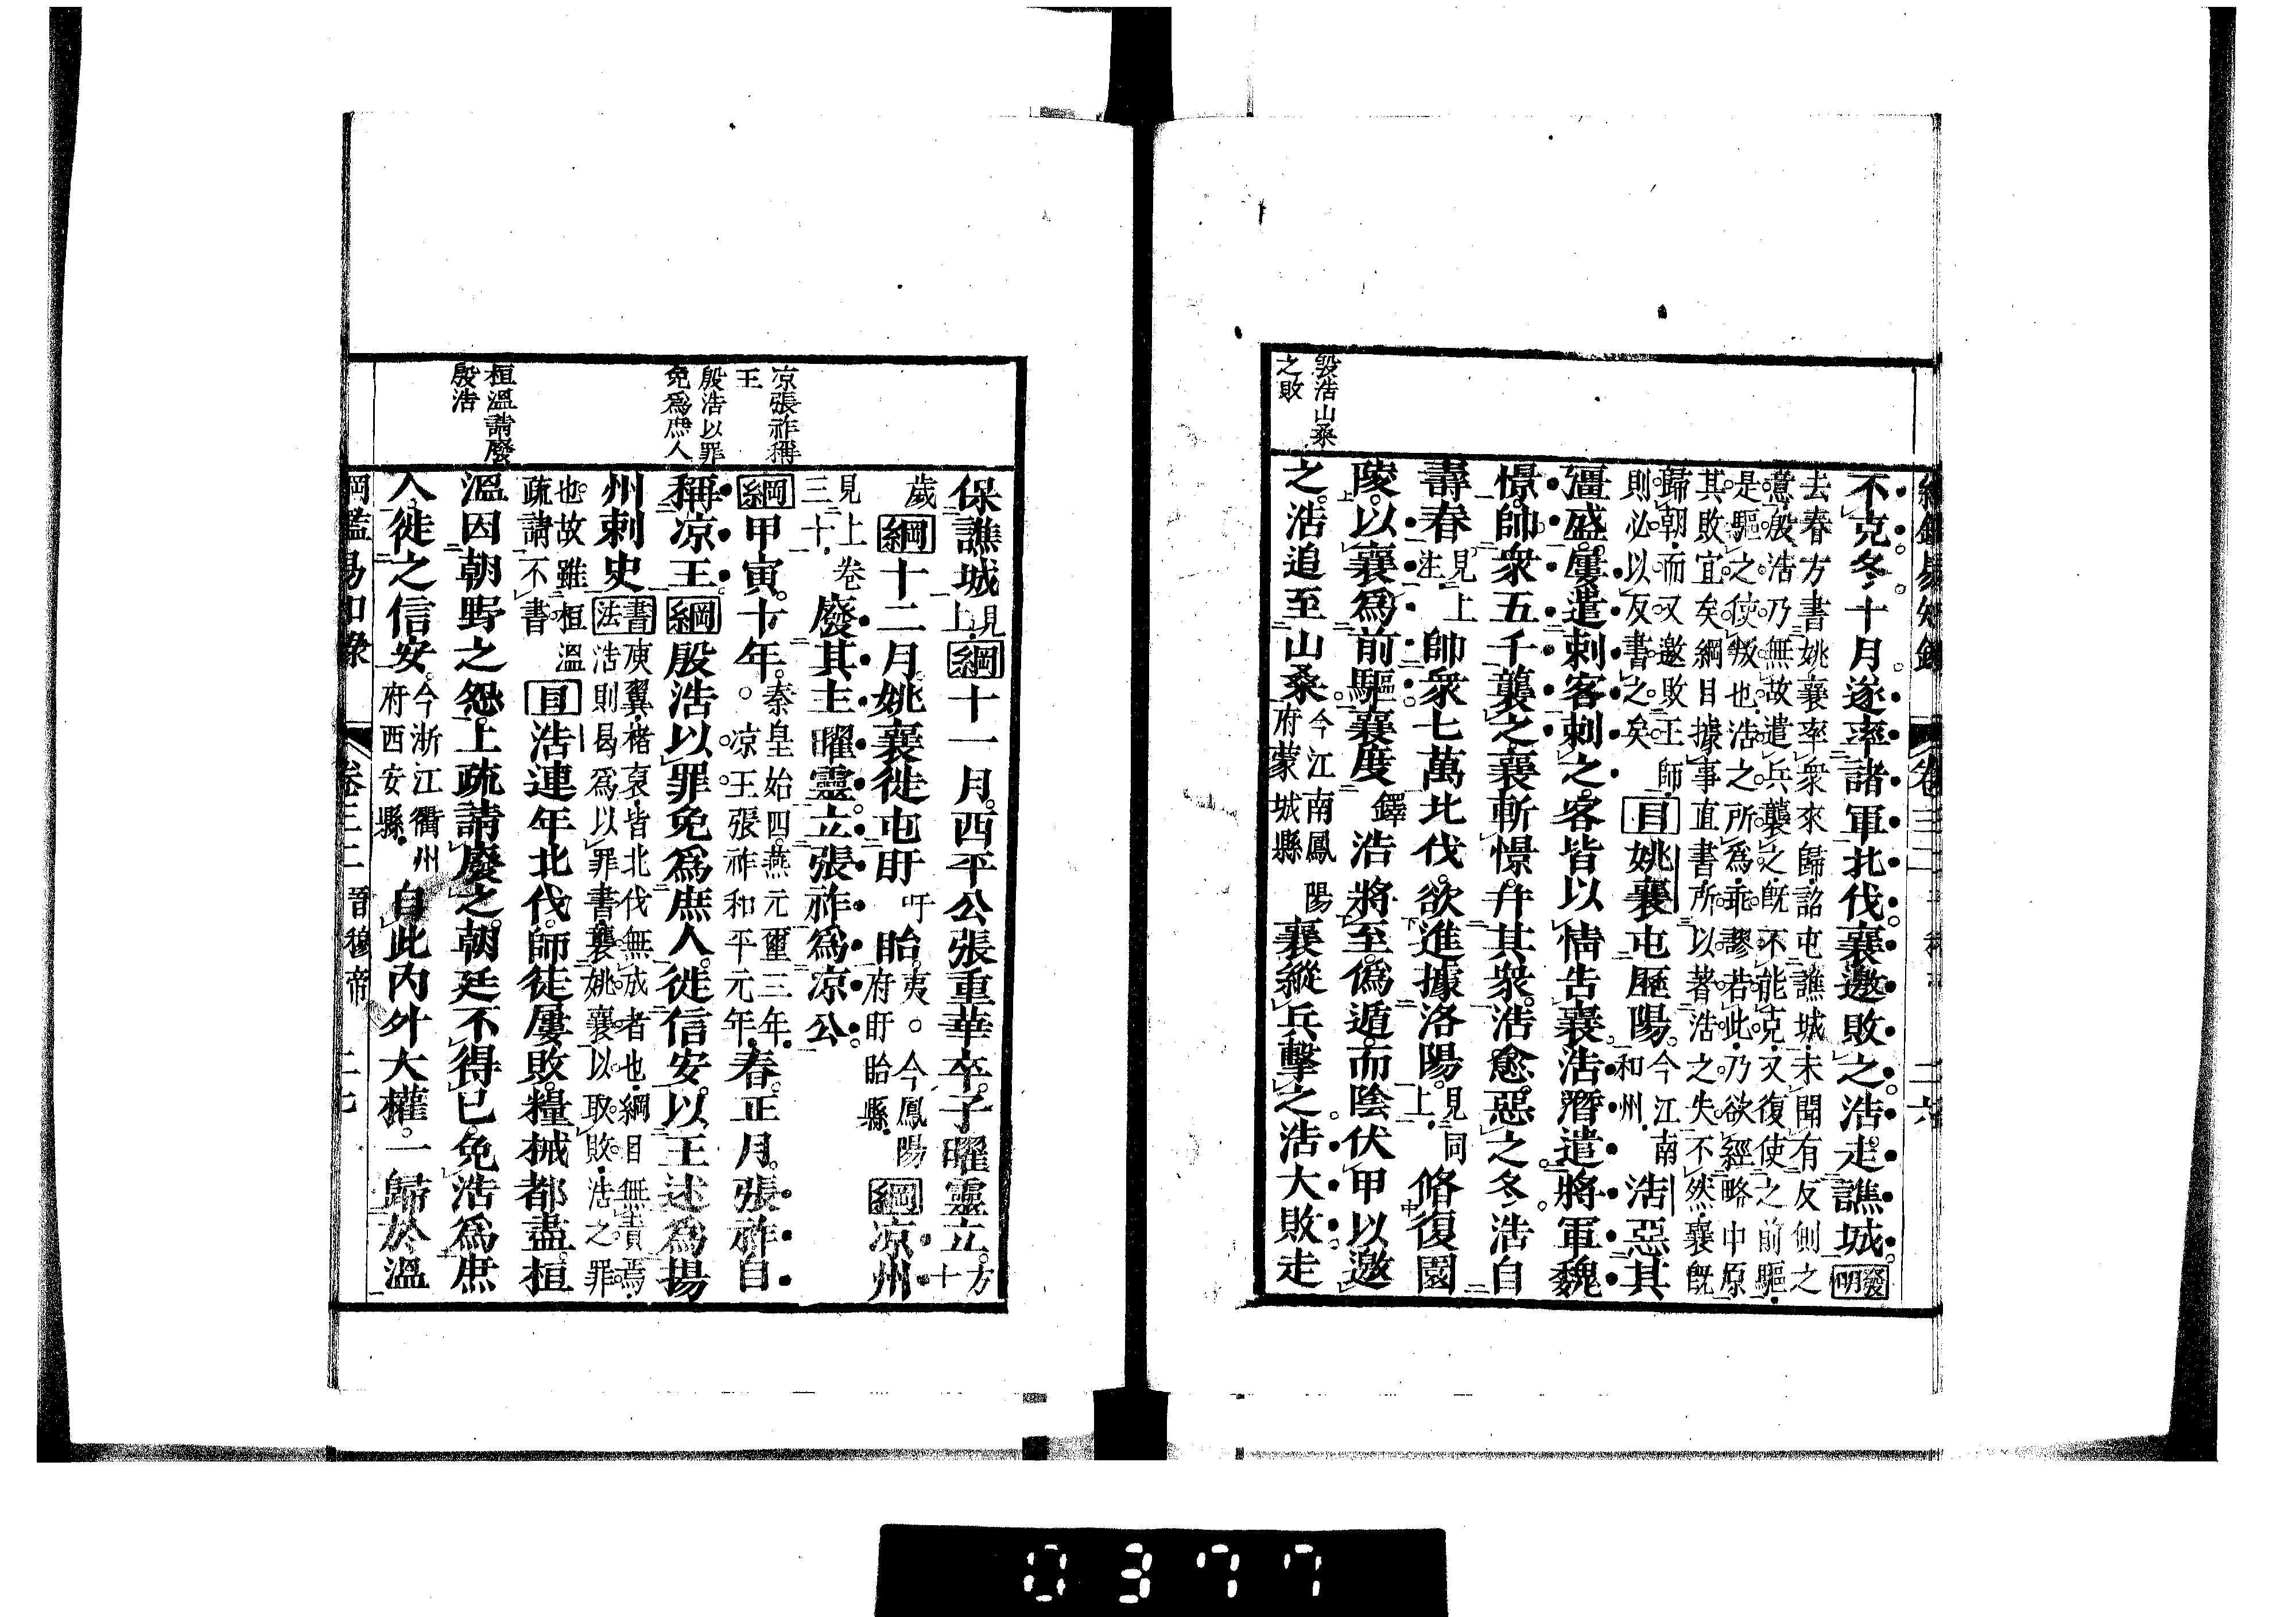 殷浩山桑
之敗
不克冬十月遂率諸軍北伐襄邀敗之浩走譙城發明
去春方書姚襄率衆來歸詔屯譙城未聞有反側之
意殷浩乃無故遣兵襲之既不能克又復使之前驅
是驅之使叛也浩之所爲乖謬若此乃欲經略中原
其敗宜矣綱目據事直書所以著浩之失不然襄既
歸朝而又邀敗王師
則必以反書之矣
目姚襄屯歷陽今江南和州浩惡其
彊盛屢遣刺客刺之客皆以情告襄浩潛遣將軍魏
憬帥衆五千襲之襄斬憬并其衆浩愈惡之冬浩自
壽春見上注帥衆七萬北伐欲進據洛陽見同上脩復園
陵以襄爲前驅襄度鐸浩將至僞遁而陰伏甲以邀
之浩追至山桑今江南鳳陽府蒙城縣襄縱兵擊之浩大敗走
卷三二
二六
凉張祚稱
王
殷浩以罪
免爲庶人
桓溫請廢
殷浩
保譙城見上綱十一月西平公張重華卒子曜靈立方十
歲綱十二月姚襄徙屯盱吁眙夷。今鳳陽府盱眙縣綱凉州
見上卷三十廢其主曜靈立張祚爲凉公
綱甲寅十年。秦皇始四燕元璽三年。凉王張祚和平元年春正月張祚自
稱凉王綱殷浩以罪免爲庶人徙信安以王述爲揚
州刺史書法庾翼褚裒皆北伐無成者也綱目無責焉浩則曷爲以罪書襲姚襄以取敗浩之罪
也故雖桓溫疏請不書目浩連年北伐師徒屢敗糧械都盡桓
溫因朝野之怨上疏請廢之朝廷不得已免浩爲庶
人徙之信安今浙江衢州府西安縣自此內外大權一歸於溫
綱鑑易知錄
卷三二
晉穆帝
二七
0377